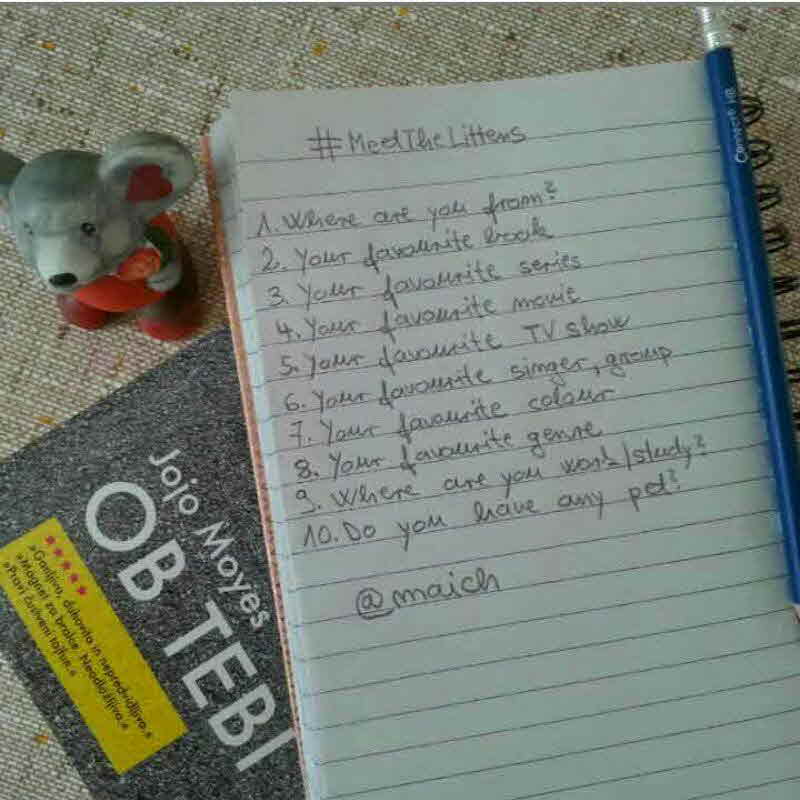 #MeetTheLitters
1. Where are you from?
2. Your favourite book
3. Your favourite series
4. Your favourite movie
5. Your favourite TV show
6. Your favourite singer, group
7. Your favourite colour
8. Your favourite genre
9. Where are you work/study?
10. Do you have any pet?
@maich
Connect HB
Jojo Moyes
OB TEBI
★★★★★
»Ganljivo, duhovito in nepredvidljivo.«
»Magnet za bralce. Neodložljivo.«
»Pravi čustveni tajfun.«